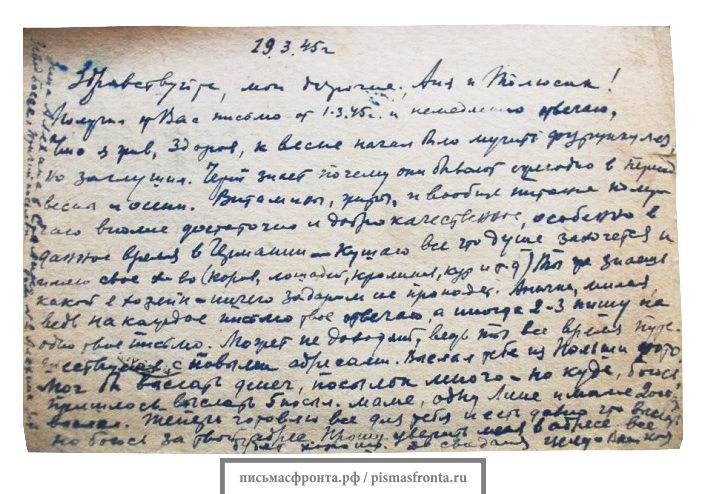 19.3.45г
Здравствуйте, мои дорогие, Аня и Толюсик!
Получил от Вас письмо от 1.3.45г. и немедленно отвечаю,
что я жив, здоров, к весне начал было мучить фурункулез,
но заглушил. Черт знает почему они бывают ежегодно в период
весны и осени. Витамины, жиры, и вообще питание получаю
вполне достаточно и доброкачественное, особенно в
данное время в Германии - кушаю все что душе захочется и
имею свое х-во (коров, лошадей, кроликов, кур и т.д) Ты же знаешь
какой я хозяин - ничего задаром не пропадет. Анечка, милая,
ведь на каждое письмо твое отвечаю, а иногда 2-3 пишу на
одно твое письмо. Может не доходят, ведь ты все время путе-
шествуешь с новыми адресами. Выслал тебе из Польши
Мог бы выслать денег, посылок много - но куда, боюсь
пришлось выслать посыл. маме, одну Лине и маме
выслал. Теперь готовлю все для тебя и есть давно что выслать
но боюсь за твой адрес. Прошу уверить меня в адресе, все
До свидания целую Ваш
письмасфронта.рф / pismasfronta.ru